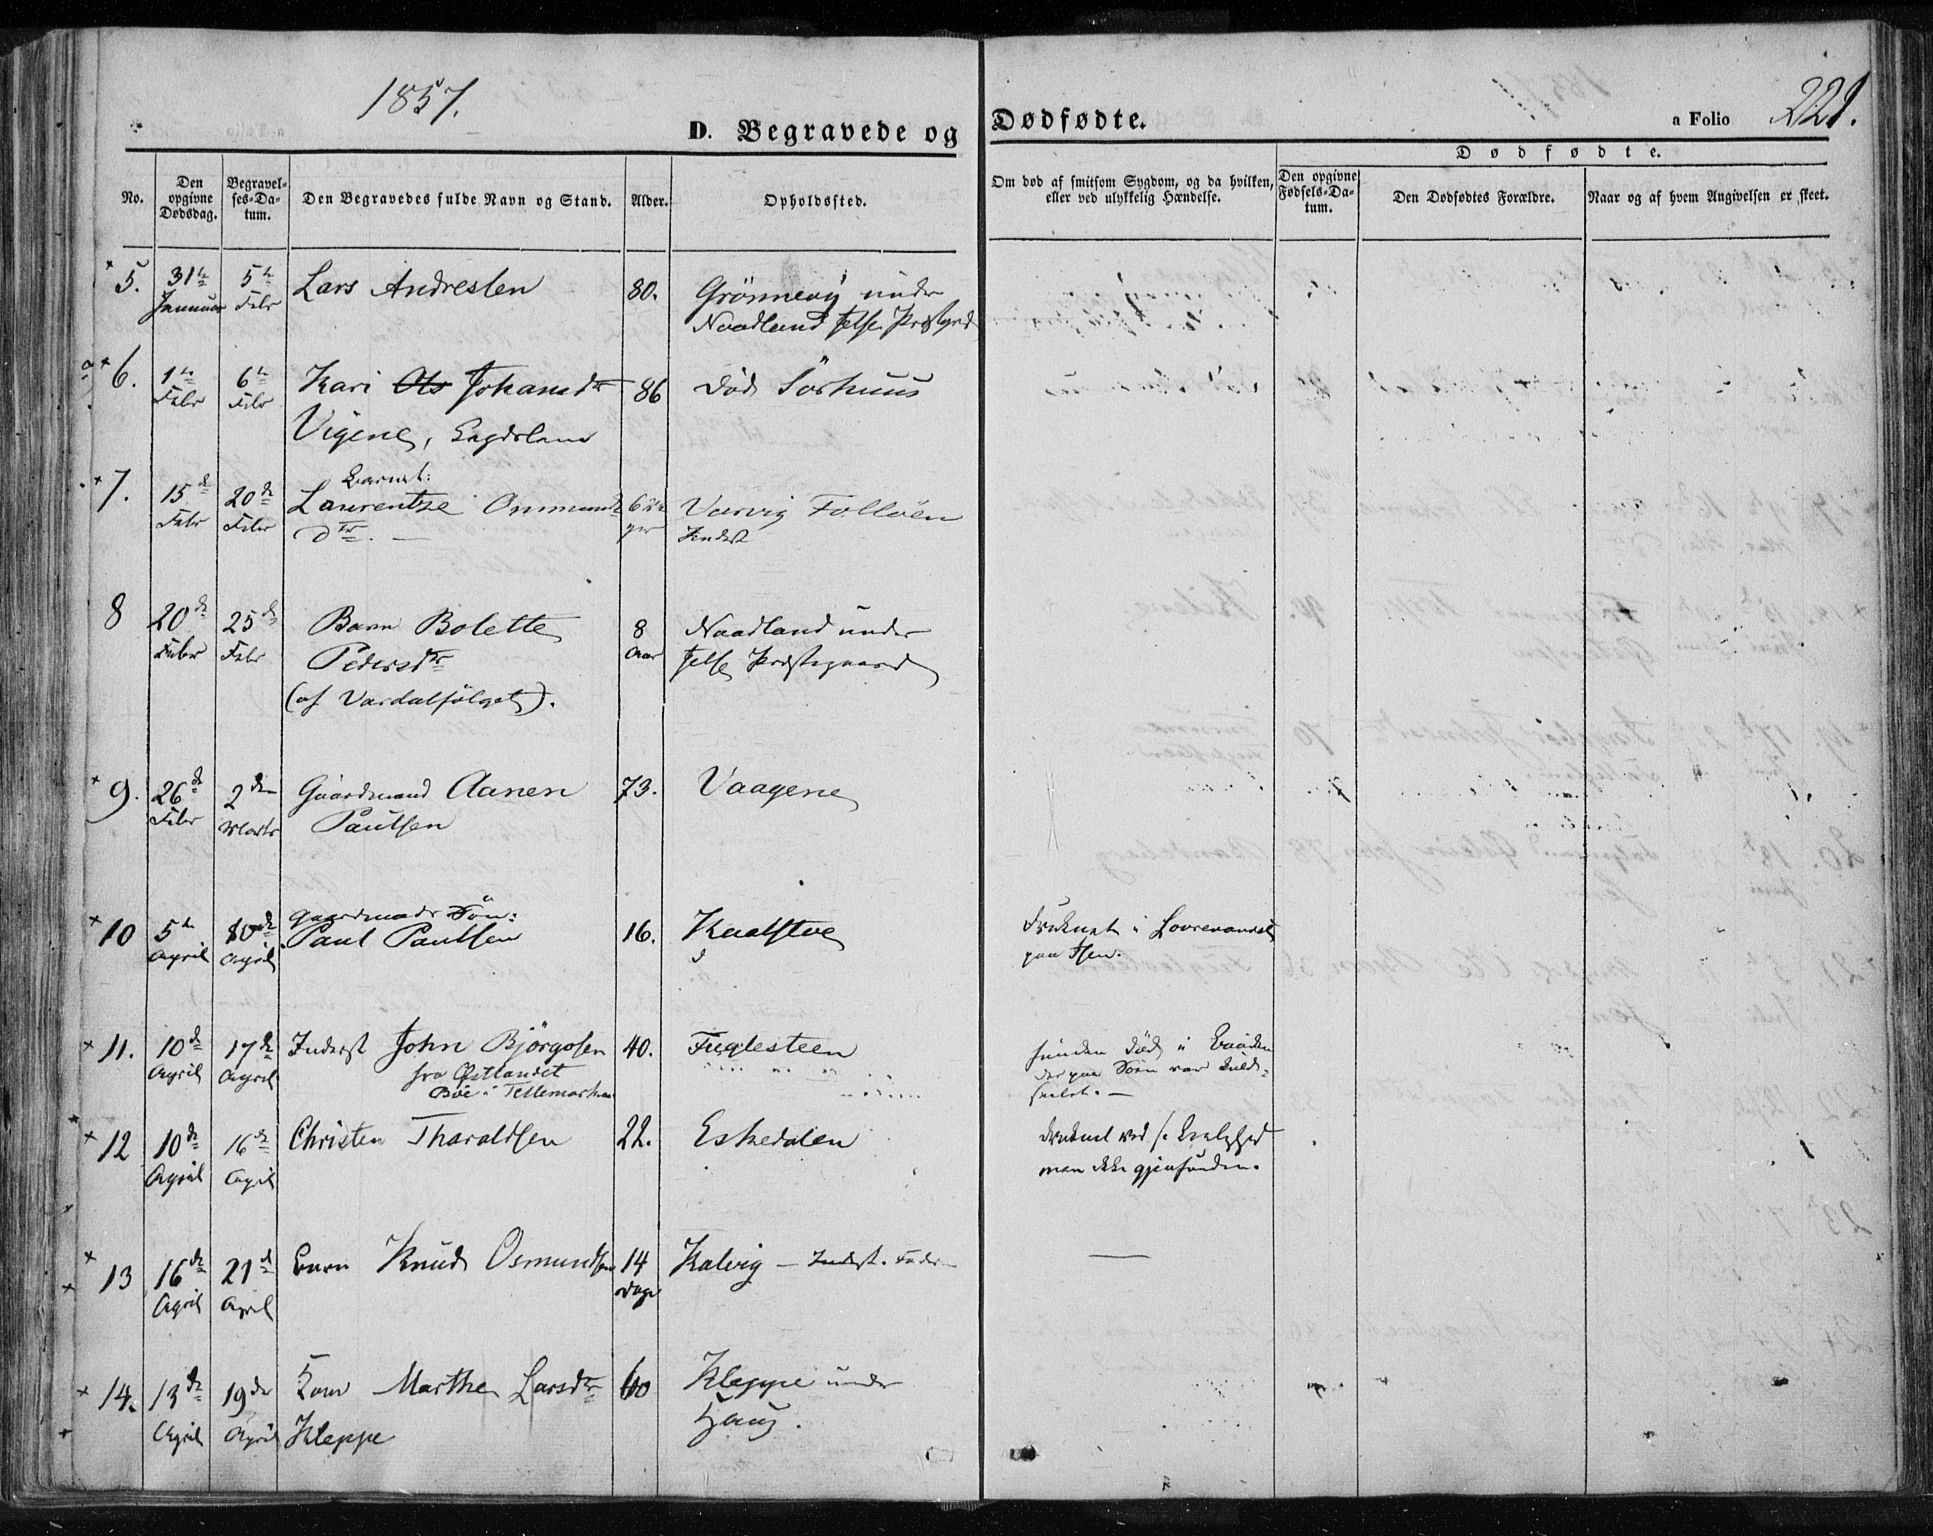 1857.
D. Begravede og Dødfødte.
a Folio 221.
No.
Den opgivne Dødsdag.
Begravelses-Datum.
Den Begravedes fulde Navn og Stand.
Alder.
Opholdssted.
Om død af smitsom Sygdom, og da hvilken, eller ved ulykkelig Hændelse.
Dødfødte.
Den opgivne Fødsels-Datum.
Den Dødfødtes Forældre.
Naar og af hvem Angivelsen er skeet.
5. 31te 5te Lars Andresen 80. Grönnevig under
Januar Febr Naadland Jelse Præstgrd
6. 1te 6te Kari Ols Johansdtr 86 død Sörhuus
Febr Febr Vigene, Lægdslem
7. 15de 20de Barnet:
Laurentze Onmunds 6 Uger Varvig Folløen
Febr Febr Dtr. Inderst
8 20de 25de Barn Bolette 8 Naadland under
Febr Febr Pedersdtr Aar Jelse Præstegaard
(af Vardalfølget).
9. 26de 2den Gaardmand Aanen 73. Vaagene
Febr Marts Paulsen
10 5te 10de Gaardmands Søn: 16. Kaalstve Druknet i Lovravandet
April April Paul Paulsen paa Isen.
11. 10de 17de Inderst John Björgosen 40. Fuglesteen funden død i Baaden
April April fra Østlandet der paa Søen var
Böe i Tellemarken
12 10de 16de Christen Tharaldsen 22. Eskedalen druknet ved s. Leilighed
April April men ikke gjenfunden.
13 16de 21de Barn Knud Osmundsen 14 Kalvig — Inderst. Fader
April April Dage
14. 13de 19de Kone Marthe Larsdtr 60 Kleppe under
April April Kleppe Haug.